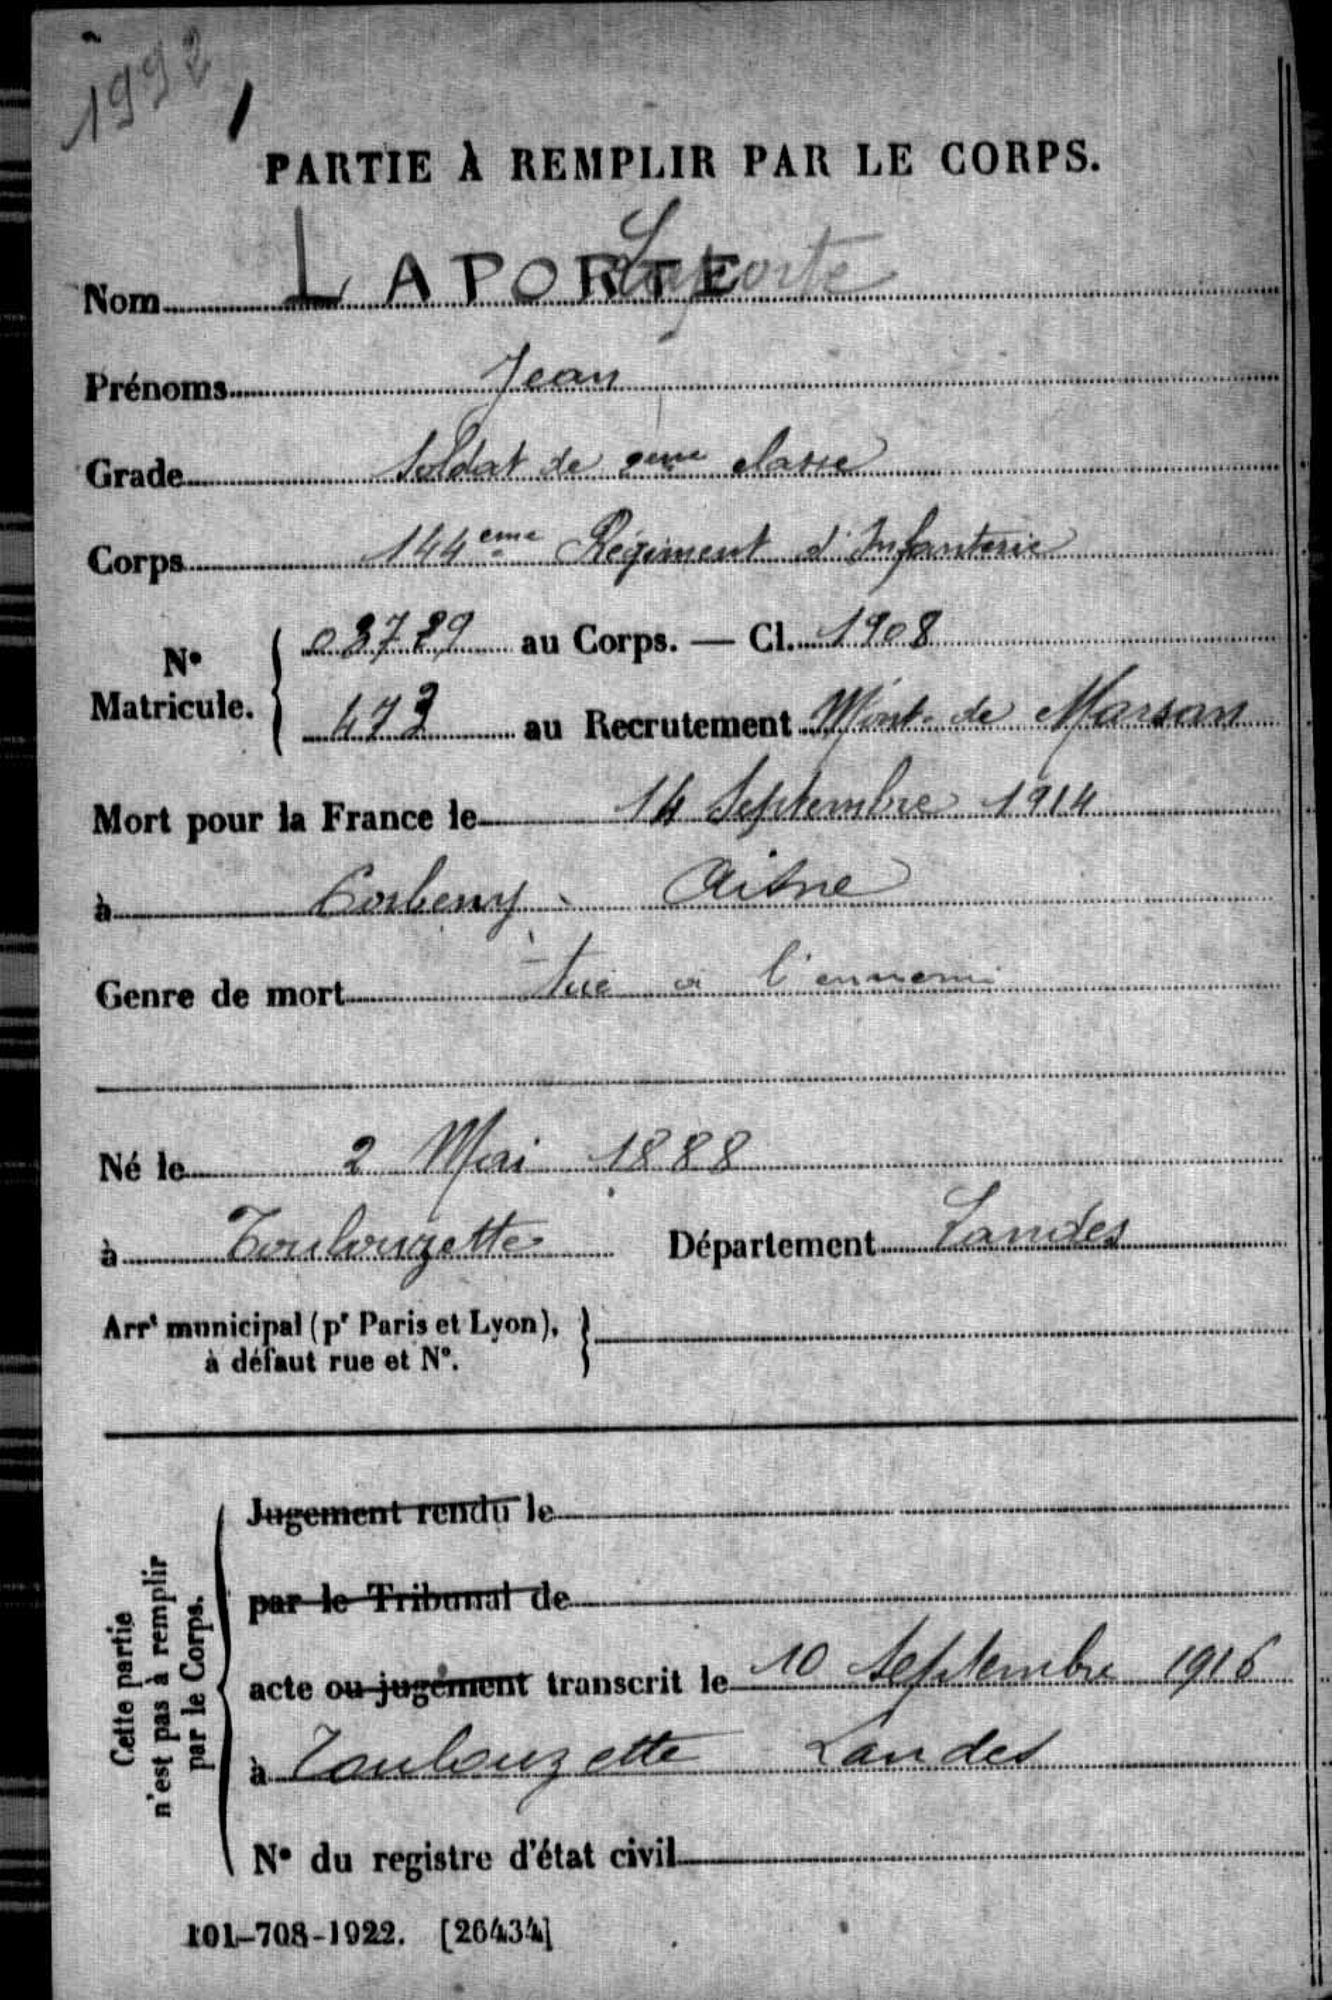 1992
PARTIE À REMPLIR PAR LE CORPS.
Nom LAPORTE Laporte
Prénoms Jean
Grade Soldat de 2eme classe
Corps 144eme Régiment d'Infanterie
N° Matricule. { 03729 au Corps. — Cl. 1908
473 au Recrutement Mont-de Marsan
Mort pour la France le 14 Septembre 1914
à Corbeny Aisne
Genre de mort tué à l'ennemi
Né le 2 Mai 1888
à Toulouzette Département Landes
Arrt municipal (pr Paris et Lyon), }
à défaut rue et N°.
Cette partie
n'est pas à remplir
par le Corps.
Jugement rendu le
par le Tribunal de
acte ou jugement transcrit le 10 Septembre 1916
à Toulouzette Landes
N° du registre d'état civil
101-708-1922. [26434]